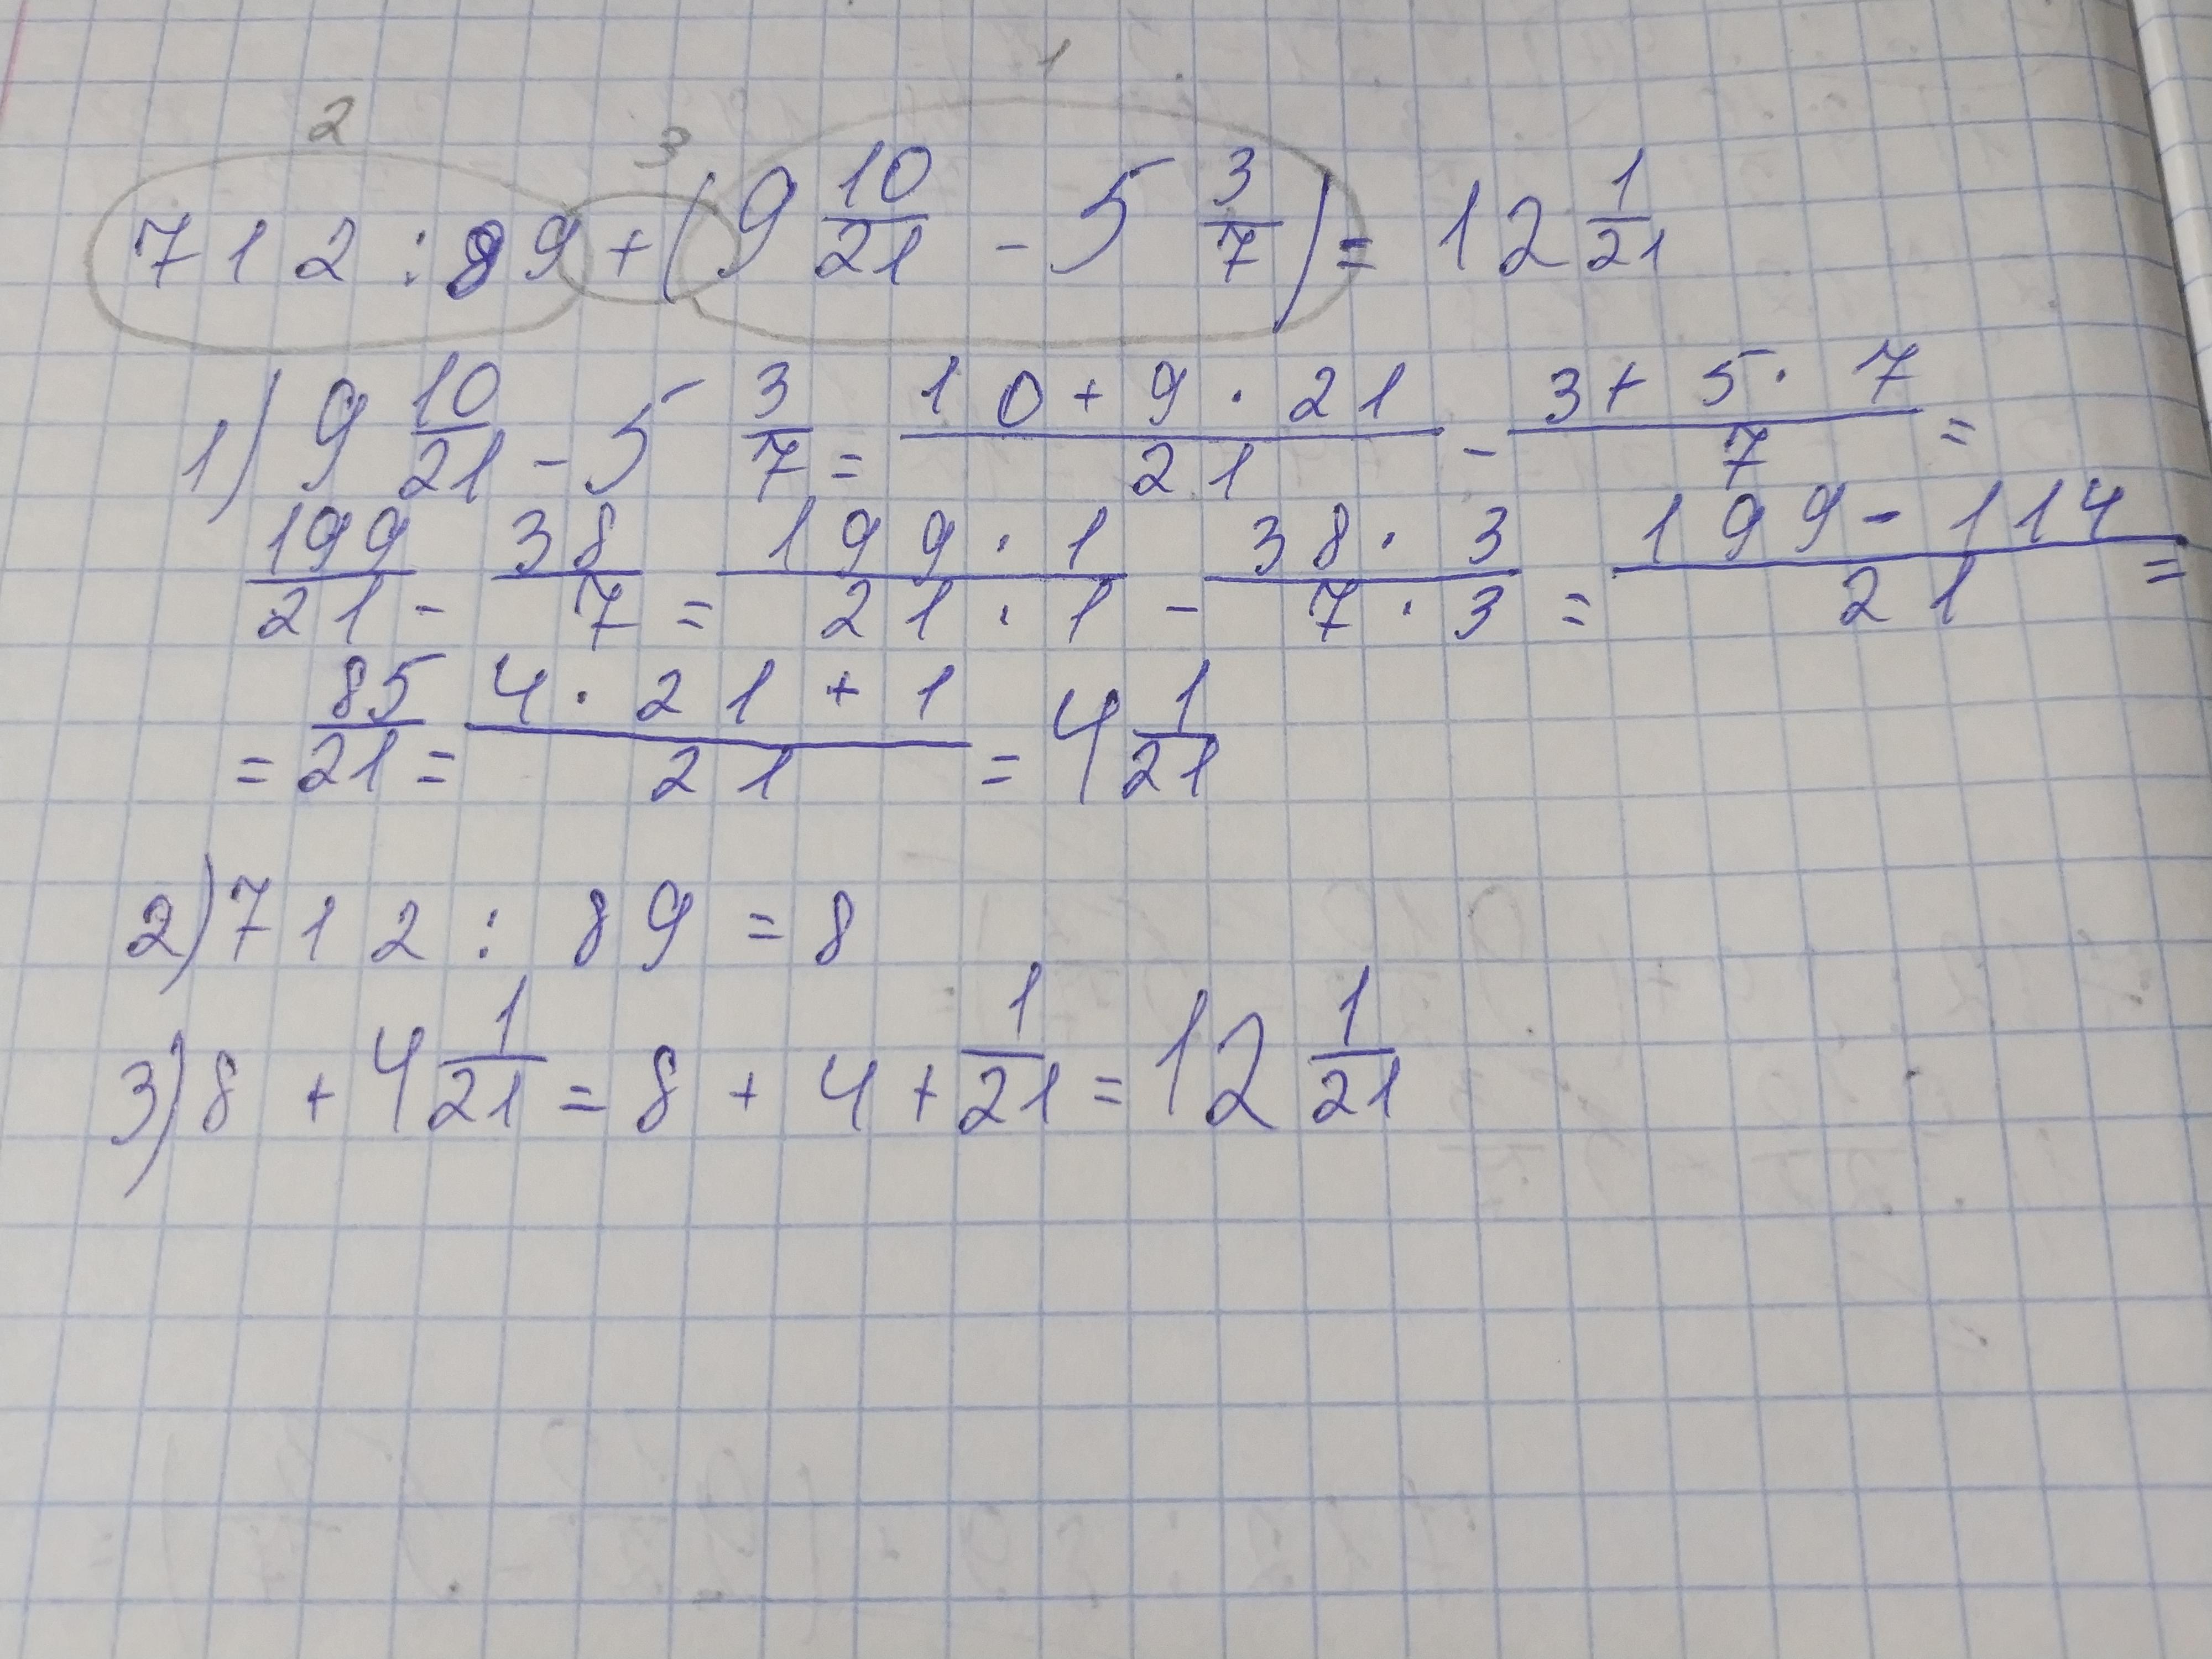 1
2 3
712 : 89 + (9 10/21 - 5 3/7) = 12 1/21
1) 9 10/21 - 5 3/7 = (10 + 9 · 21)/21 - (3 + 5 · 7)/7 =
199/21 - 38/7 = (199 · 1)/(21 · 1) - (38 · 3)/(7 · 3) = (199 - 114)/21 =
= 85/21 = (4 · 21 + 1)/21 = 4 1/21
2) 712 : 89 = 8
3) 8 + 4 1/21 = 8 + 4 + 1/21 = 12 1/21